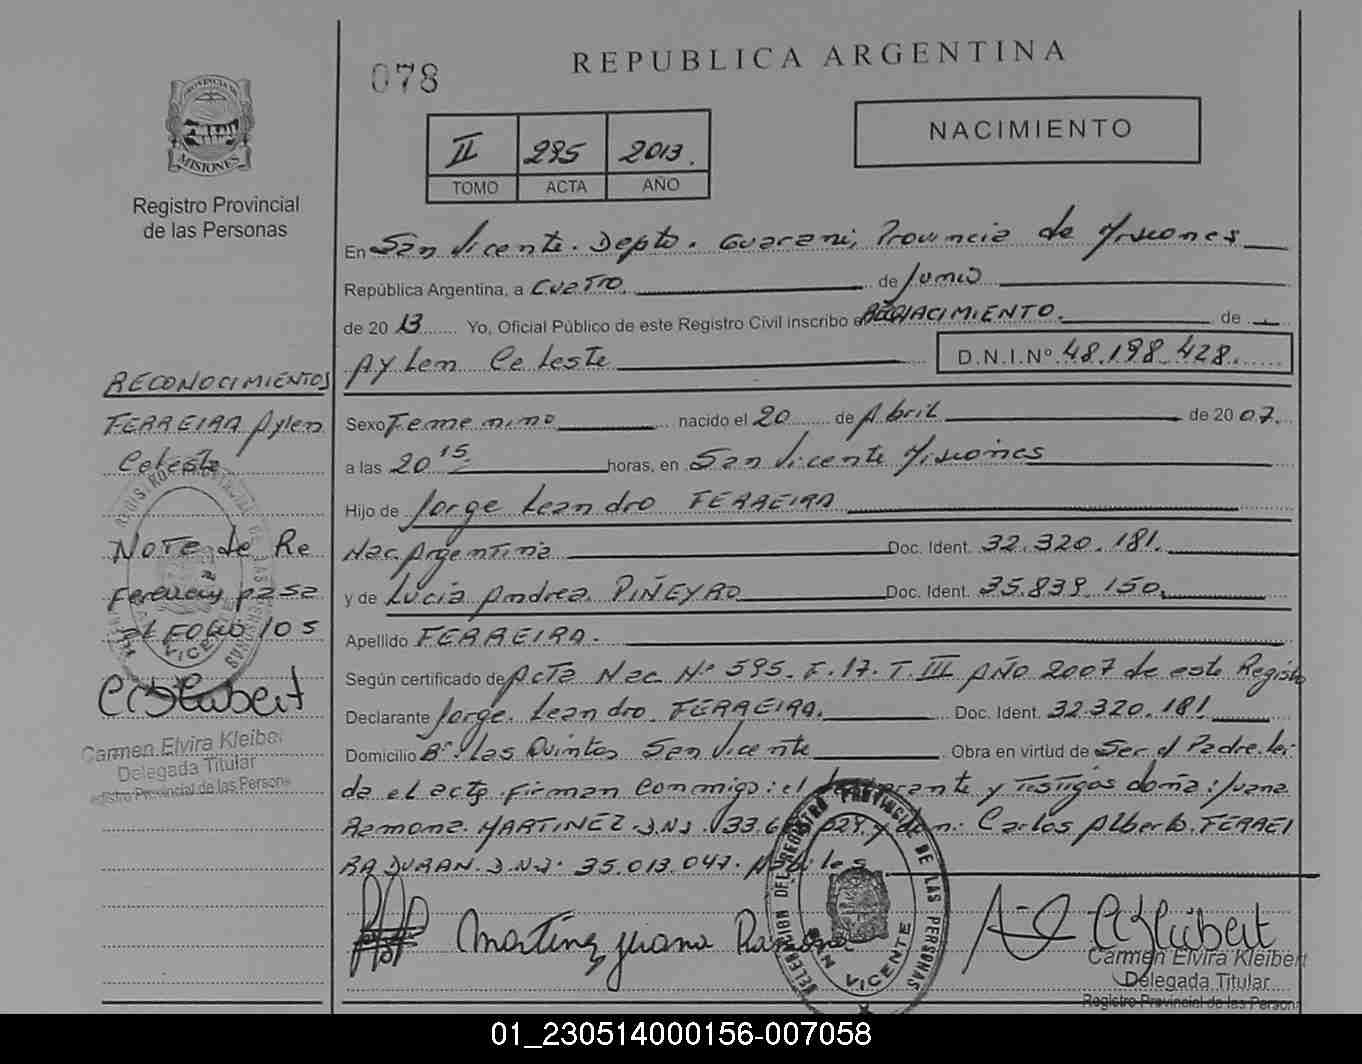 078
REPUBLICA ARGENTINA
PROVINCIA DE
MISIONES
Registro Provincial
de las Personas
II 295 2013.
TOMO ACTA AÑO
NACIMIENTO
En San Vicente. Depto. Guarani, Provincia de Misiones
República Argentina, a cuatro de Junio
de 2013 Yo, Oficial Público de este Registro Civil inscribo NACIMIENTO. de
Aylen Celeste D.N.I.Nº 48.198.428.
Sexo Femenino nacido el 20 de Abril de 2007.
a las 20 15 horas, en San Vicente Misiones
Hijo de Jorge Leandro FERREIRA
Nac. Argentina Doc. Ident. 32.320.181.
y de Lucia Andrea PIÑEYRO Doc. Ident. 35.839.150.
Apellido FERREIRA.
Según certificado de Acta Nac. Nº 595. F. 17. T. III AÑO 2007 de este Registro
Declarante Jorge Leandro FERREIRA. Doc. Ident. 32.320.181
Domicilio Bº Las Quintas San Vicente Obra en virtud de Ser el Padre. lei
da el acta firman conmigo: el y Testigos doña: Juana
Ramona MARTINEZ D.N.I. Carlos Alberto FERREI
RA DURAN. D.N.I. 35.013.047.
Martinez Juana Ramona
DELEGACION DEL REGISTRO PROVINCIAL DE LAS PERSONAS
SAN VICENTE
C Kleibert
Carmen Elvira Kleibert
Delegada Titular
Registro Provincial de las Persona
RECONOCIMIENTOS
FERREIRA Aylen
Celeste
NOTA de Re
ferencia pasa
al FOLIO 105
C Kleibert
Carmen Elvira Kleiber
Delegada Titular
Registro Provincial de las Persona
01_230514000156-007058